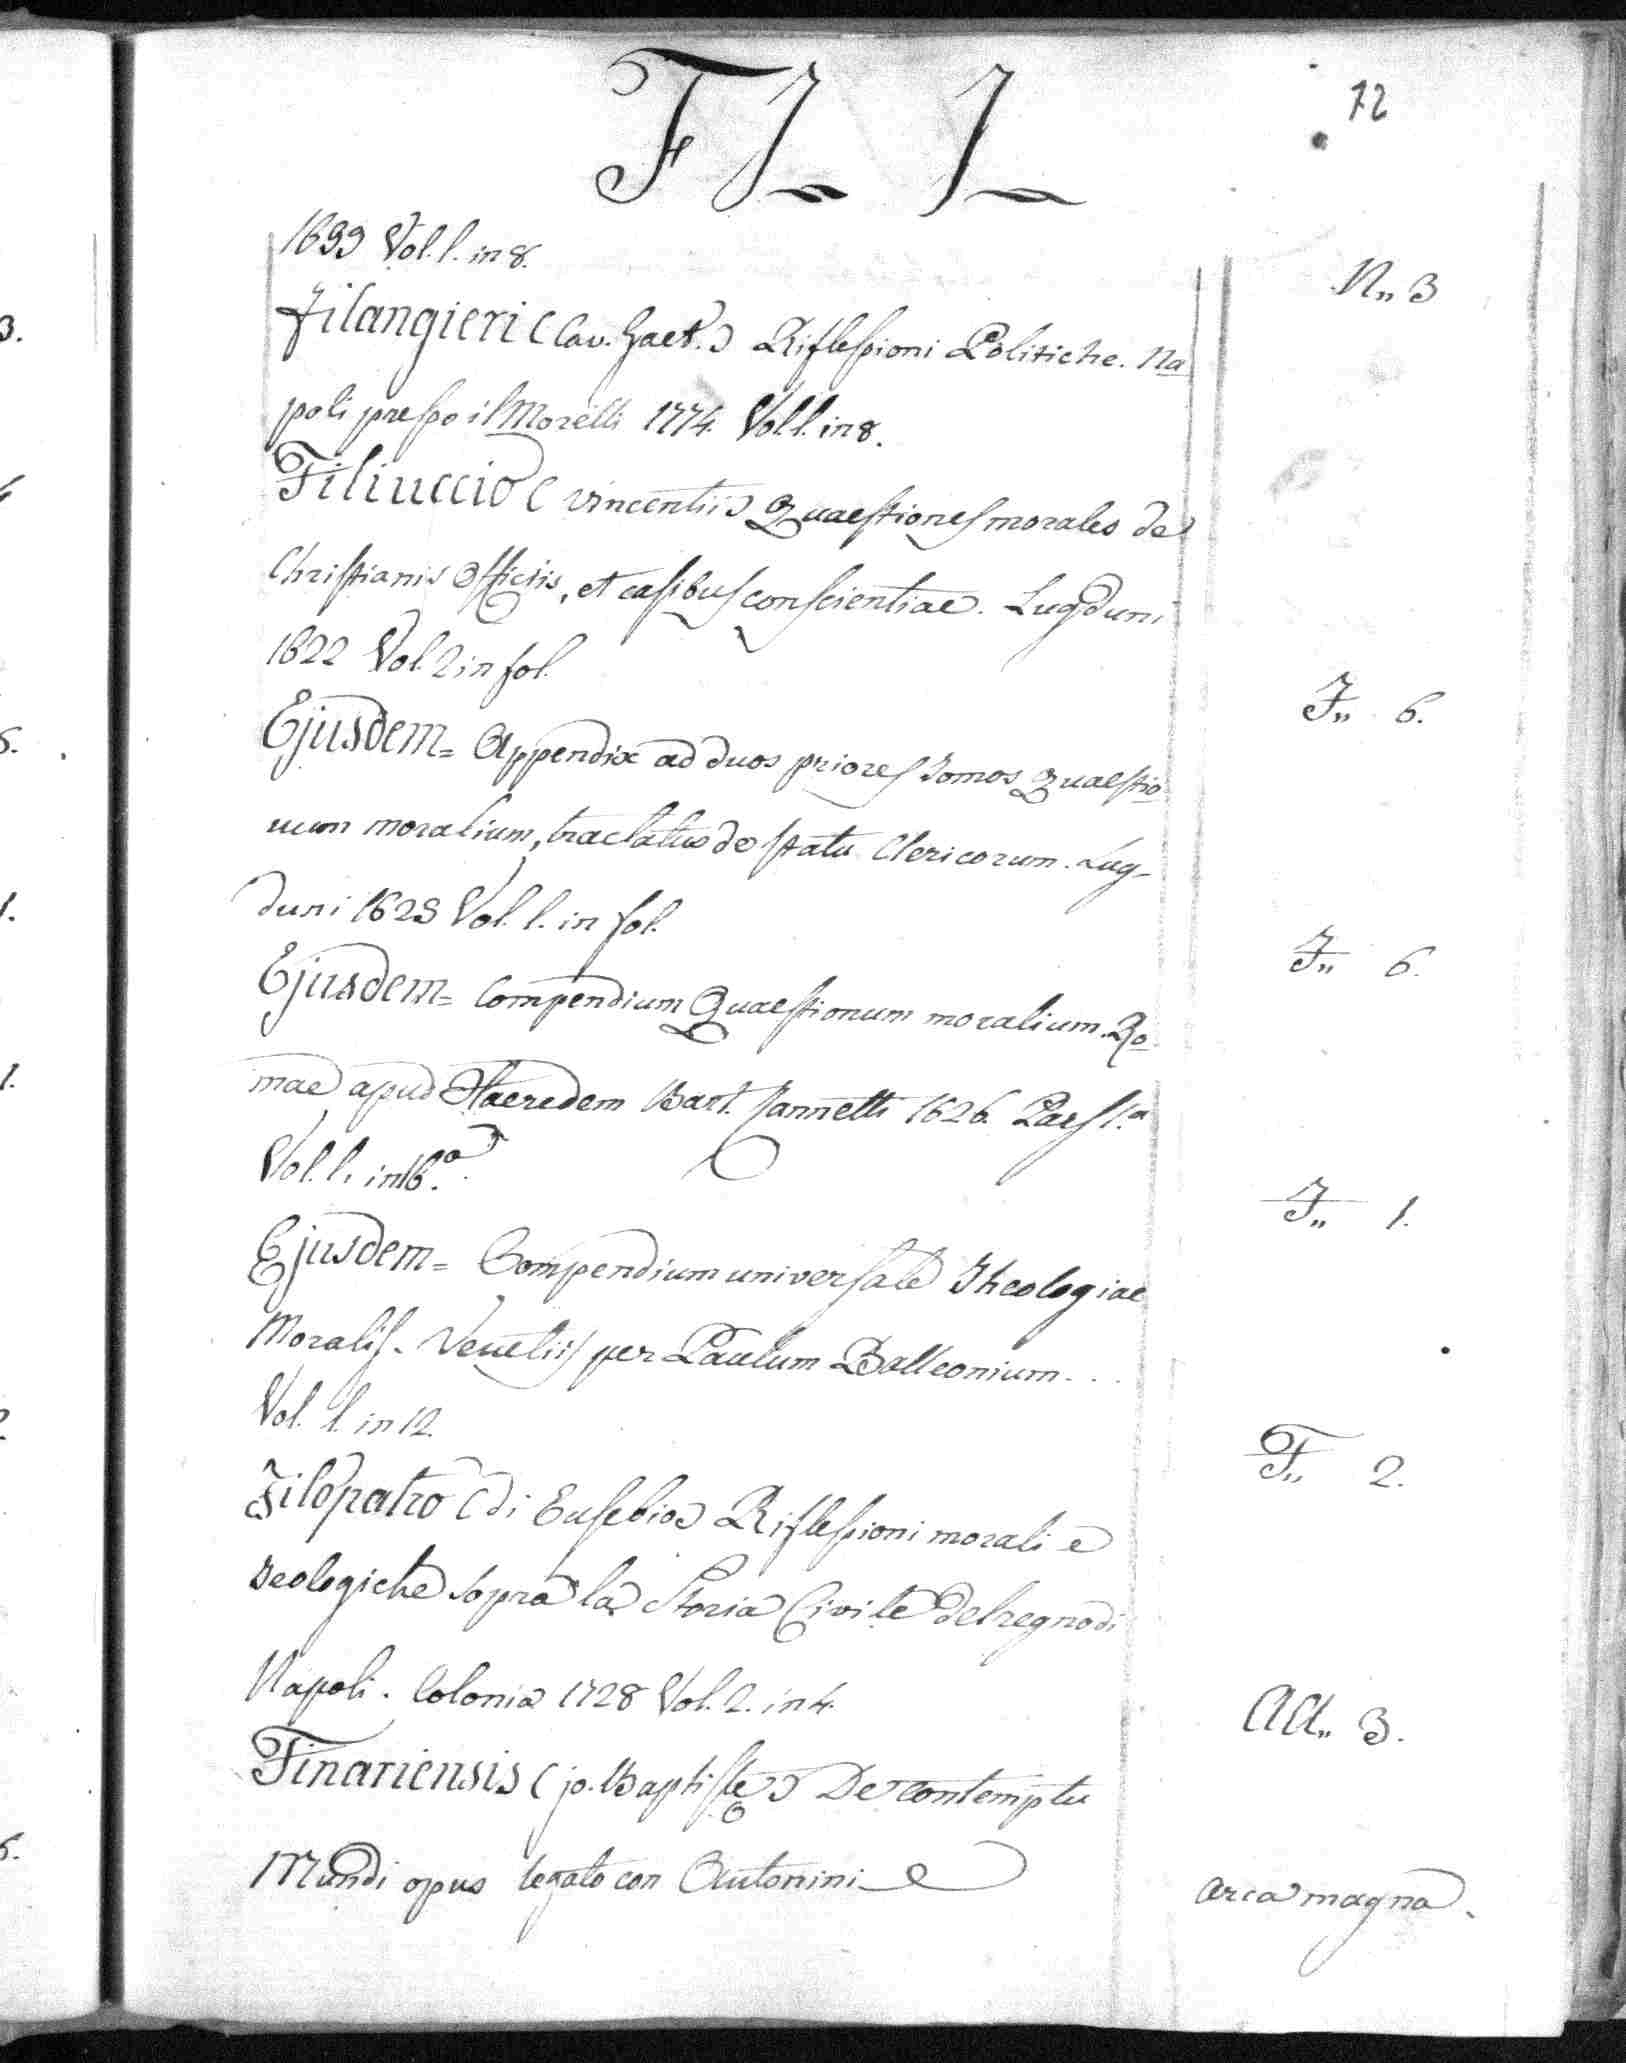 72
F I„ I„
1699 Vol. 1. in 8.
N„ 3
Filangieri (Cav. Gaet.) Riflessioni Politiche. Na
poli presso il Morelli 1774. Vol. 1. in 8.
Filiuccio (Vincentii) Quaestiones morales de
Christianis Officiis, et casibus conscientiae. Lugduni
1622 Vol. 2 in fol.
F„ 6.
Ejusdem = Appendix ad duos priores Tomos Quaestio
num moralium, tractatus de statu Clericorum. Lug-
duni 1623 Vol. 1. in fol.
F„ 6.
Ejusdem = Compendium Quaestionum moralium. Ro
mae apud Haeredem Bart. Zannetti 1626. Pars 1.a
Vol. 1. in 16.o
F„ 1.
Ejusdem = Compendium universale Theologiae
Moralis. Venetiis per Paulum Balleonium...
Vol. 1. in 12.
F„ 2.
Filopatro (di Eusebio) Riflessioni morali e
teologiche sopra la Storia Civile del regno di
Napoli. Colonia 1728 Vol. 2. in 4.
AA„ 3.
Finariensis (jo. Baptistae) De contemptu
Mundi opus legato con Antonini
arca magna.